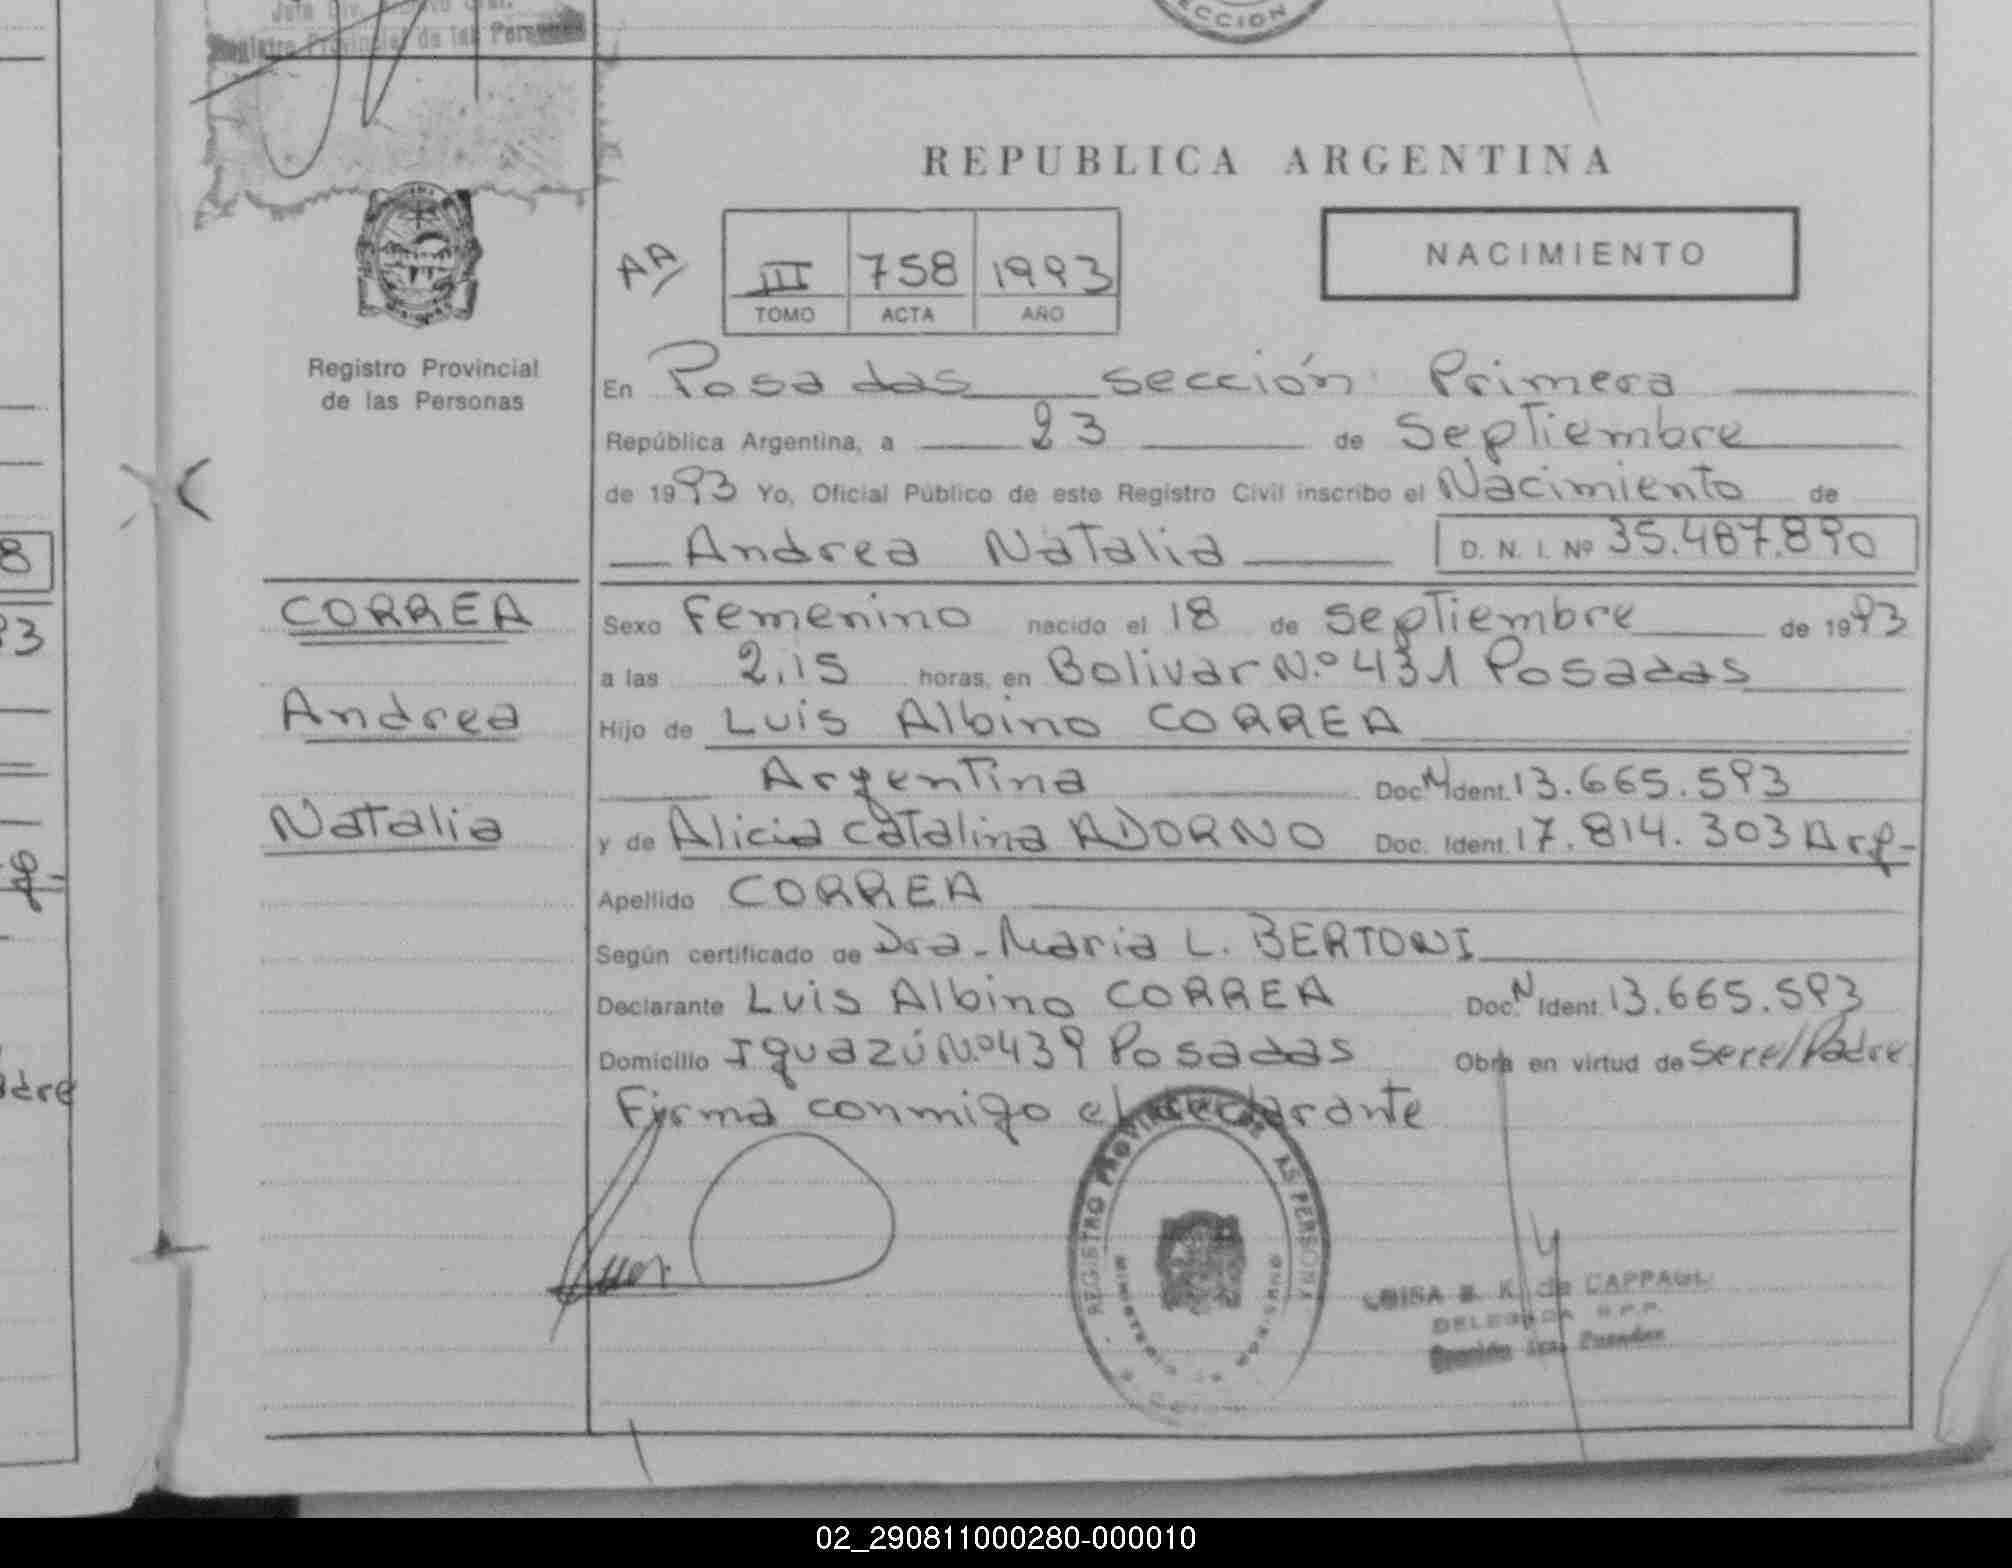 Registro Provincial de las Personas
ECCION
REPUBLICA ARGENTINA
AA
III 758 1993
TOMO ACTA AÑO
NACIMIENTO
Registro Provincial
de las Personas
En Posadas sección Primera
República Argentina, a 23 de Septiembre
de 1993 Yo, Oficial Público de este Registro Civil inscribo el Nacimiento de
Andrea Natalia D. N. I. Nº 35.487.890
CORREA
Andrea
Natalia
Sexo Femenino nacido el 18 de septiembre de 1993
a las 2,15 horas, en Bolivar N.º 431 Posadas
Hijo de Luis Albino CORREA
Argentina Doc. N Ident. 13.665.593
y de Alicia Catalina ADORNO Doc. Ident. 17.814.303 Arg-
Apellido CORREA
Según certificado de Dra- Maria L. BERTONI
Declarante Luis Albino CORREA Doc. N Ident. 13.665.593
Domicilio Iguazú N.º 439 Posadas Obra en virtud de ser el Padre
Firma conmigo el declarante
REGISTRO PROVINCIAL DE LAS PERSONAS
de CAPPAGLI
DELEGADA R.P.P.
8
93
adre
02_290811000280-000010